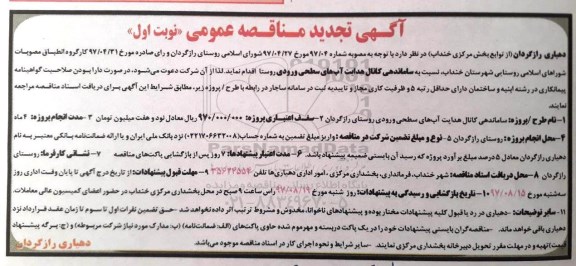 آگهی تجدید مناقصه عمومی «نوبت اول»
دهیاری رازگردان (از توابع بخش مرکزی خنداب) در نظر دارد با توجه به مصوبه شماره ۹۷/۰۴ مورخ ۹۷/۰۴/۲۷ شورای اسلامی روستای رازگردان و رای صادره مورخ ۹۷/۰۴/۳۱ کارگروه انطباق مصوبات
شوراهای اسلامی روستایی شهرستان خنداب، نسبت به ساماندهی کانال هدایت آب‌های سطحی ورودی روستا اقدام نماید. لذا از آن شرکت دعوت می‌شود، در صورت دارا بودن صلاحیت گواهینامه
پیمانکاری در رشته ابنیه و ساختمان دارای حداقل رتبه ۵ و ظرفیت کاری مجاز و تاییدیه ثبت در سامانه ساجار در رابطه با طرح / پروژه زیر، مطابق شرایط این آگهی برای دریافت اسناد مناقصه مراجعه
نمایند.
۱- نام طرح / پروژه: ساماندهی کانال هدایت آب‌های سطحی ورودی روستای رازگردان ۲- سقف اعتباری پروژه: ۹۷۰/۰۰۰/۰۰۰ ریال معادل نود و هفت میلیون تومان ۳- مدت انجام پروژه: ۴ ماه
۴- محل انجام پروژه: روستای رازگردان ۵- نوع و مبلغ تضمین شرکت در مناقصه: واریز مبلغ تضمین به شماره حساب نزد بانک ملی ایران و یا ارائه ضمانتنامه بانکی معتبر به نام
دهیاری رازگردان معادل ۵ درصد مبلغ برآورد پروژه که رسید آن بایستی ضمیمه پیشنهاد باشد. ۶- مدت اعتبار پیشنهادها: ۷ روز پس از بازگشایی پاکت‌های مناقصه ۷- نشانی کارفرما: روستای
رازگردان ۸- محل دریافت اسناد مناقصه: شهر خنداب، فرمانداری، بخشداری مرکزی، امور اداری دهیاری‌ها تلفن ۳۵۶۴۴۵۵۴ ۹- مهلت قبول پیشنهادات: از تاریخ درج آگهی تا پایان وقت اداری روز
سه‌شنبه مورخ ۹۷/۰۸/۱۵ ۱۰- تاریخ بازگشایی و رسیدگی به پیشنهادات: روز شنبه مورخ ۹۷/۰۸/۱۹ راس ساعت ۱۰ صبح در محل بخشداری مرکزی خنداب در حضور اعضای کمیسیون عالی معاملات
۱۱- سایر توضیحات: دهیاری در رد یا قبول کلیه پیشنهادات مختار بوده و پیشنهادهای ناخوانا، مخدوش و مشروط ترتیب اثر داده نخواهد شد. حق تضمین نفرات اول تا سوم تا زمان عقد قرارداد نزد
دهیاری باقی خواهد ماند. مناقصه‌گران بایستی پیشنهادات خود را در یک پاکت دربسته و مهرموم شده حاوی پاکت‌های (الف: ضمانتنامه) (ب: مدارک مورد نیاز شرکت مربوطه) و (ج: برگه پیشنهاد
قیمت) تهیه و در مهلت مقرر تحویل دبیرخانه بخشداری مرکزی نمایند. سایر شرایط و نحوه اجرای کار در اسناد مناقصه موجود می‌باشد.
دهیاری رازگردان